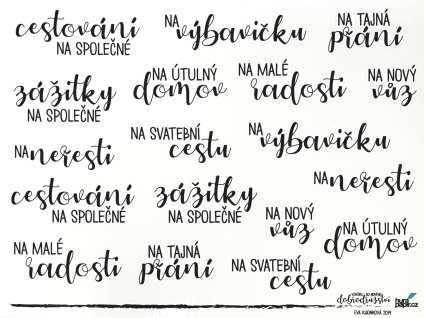 na společné cestování
NA výbavičku
NA TAJNÁ přání
zážitky NA SPOLEČNÉ
NA ÚTULNÝ domov
NA MALÉ radosti
NA NOVÝ vůz
NA neřesti
NA SVATEBNÍ cestu
NA výbavičku
cestování NA SPOLEČNÉ
zážitky NA SPOLEČNÉ
NA neřesti
NA NOVÝ vůz
NA ÚTULNÝ domov
NA MALÉ radosti
NA TAJNÁ přání
NA SVATEBNÍ cestu
dobrodružství
EVA KUDRNOVÁ 2019